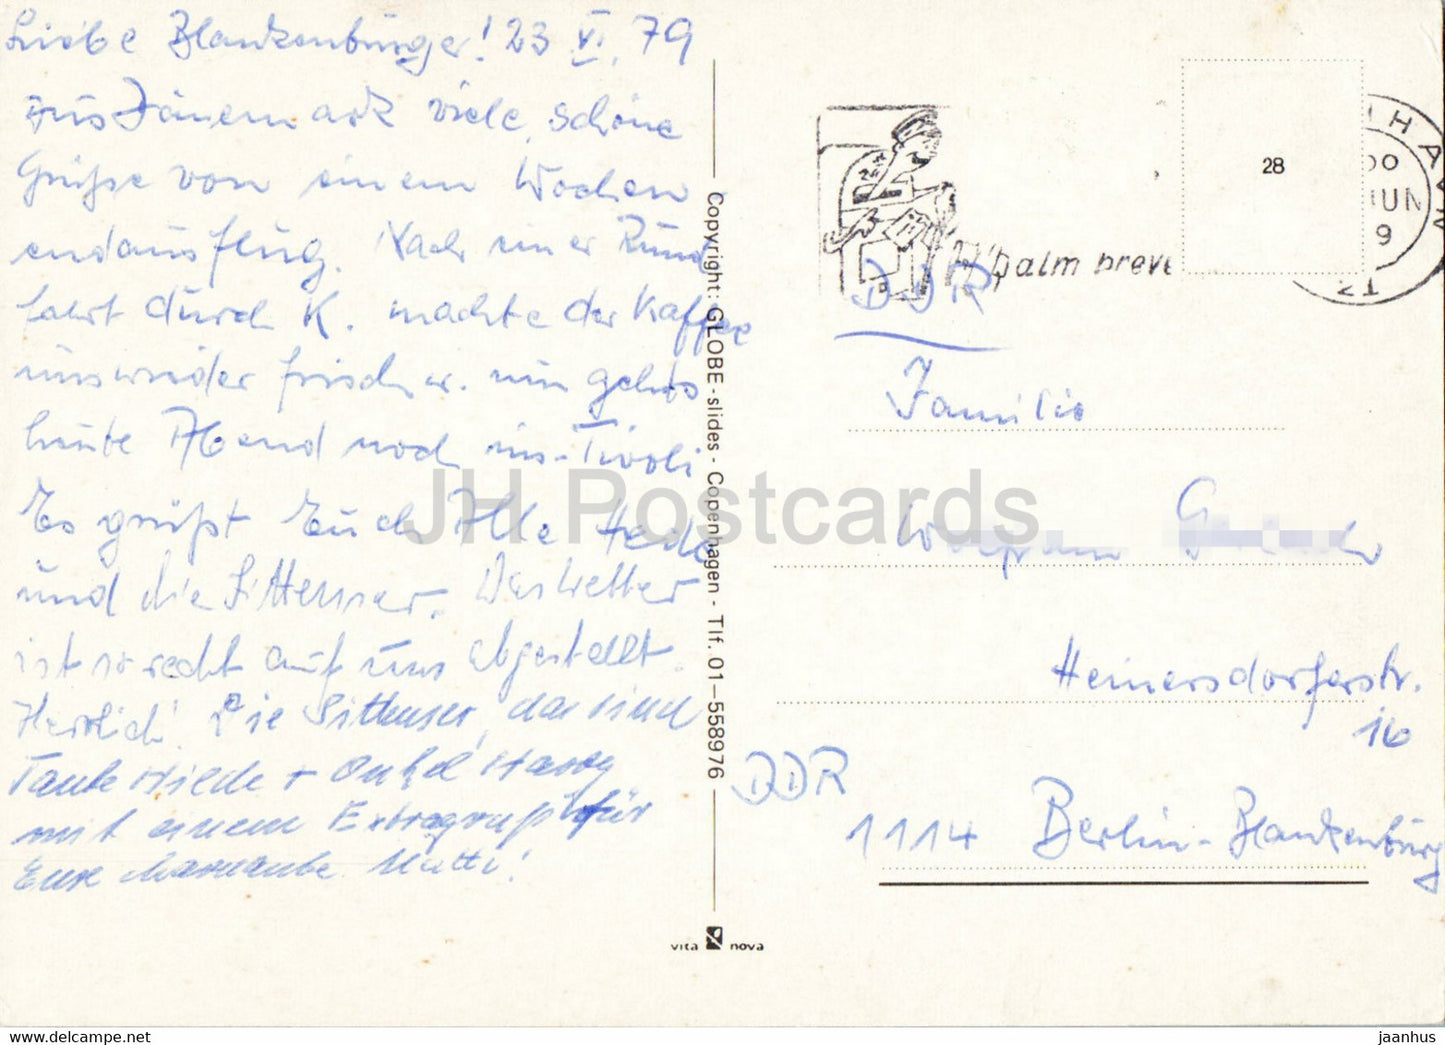 Liebe Blankenburger! 23 VI. 79
aus Dänemark viele, schöne
Grüße von einem Wochen
endausflug. Nach einer Rund
fahrt durch K. machte der Kaffee
uns wieder frisch u. nun gehts
heute Abend noch ins Tivoli
Es grüßt Euch Alle Heide
und die Sittenser. Das Wetter
ist so recht auf uns abgestellt.
Herrlich! Die Sittenser, das sind
Tante Hilde + Onkel Harry
mit einem Extragruß für
Eure Mutti!
Copyright: GLOBE-slides - Copenhagen - Tlf. 01-558976
vita nova
28
HAVN
00
JUN
9
palm breve
DDR
Familie
Wolfram
Heinersdorferstr.
16
DDR
1114 Berlin-Blankenburg
JH Postcards
www.hippostcard.com
jaanhus